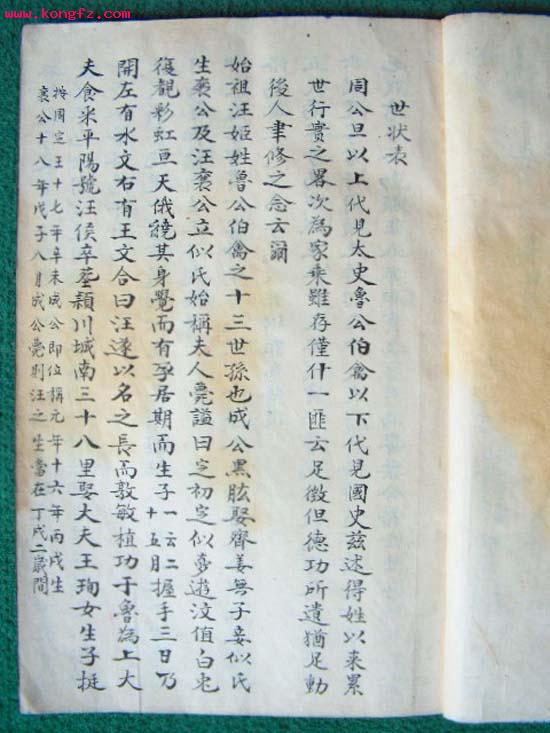 www.kongfz.com
世状表
周公旦以上代見太史魯公伯禽以下代見國史兹述得姓以来累
世行實之畧次為家乘雖存僅什一匪云足徵但德功所遺猶足動
後人聿修之念云爾
始祖汪姬姓魯公伯禽之十三世孫也成公黑肱娶齊姜無子妾姒氏
生襄公及汪襄公立姒氏始稱夫人薨謚曰定初定姒夢遊汶值白虎
復觀彩虹亘天俄繞其身覺而有孕居期而生子一云二十五月握手三日乃
開左有水文右有王文合曰汪遂以名之長而敦敏植功于魯為上大
夫食采平陽號汪侯卒塟潁川城南三十八里娶大夫王珣女生子挺
按周定王十七年辛未成公即位稱元年十六年丙戌生
襄公十八年戊子八月成公薨則汪之生當在丁戌二歲間